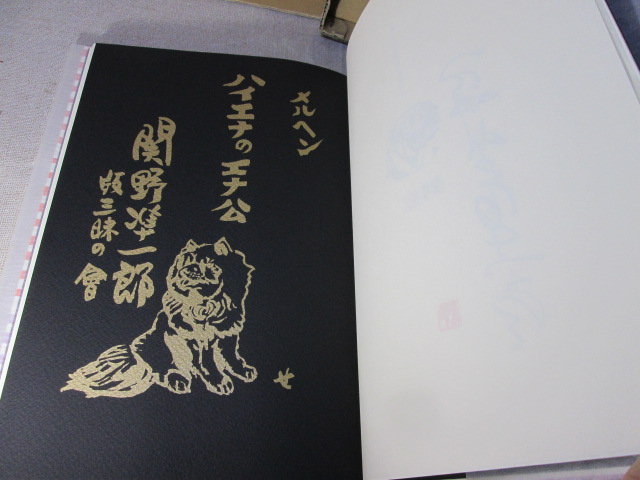 メルヘン
ハイエナのエナ公
関野凖一郎
版三昧の會
せ